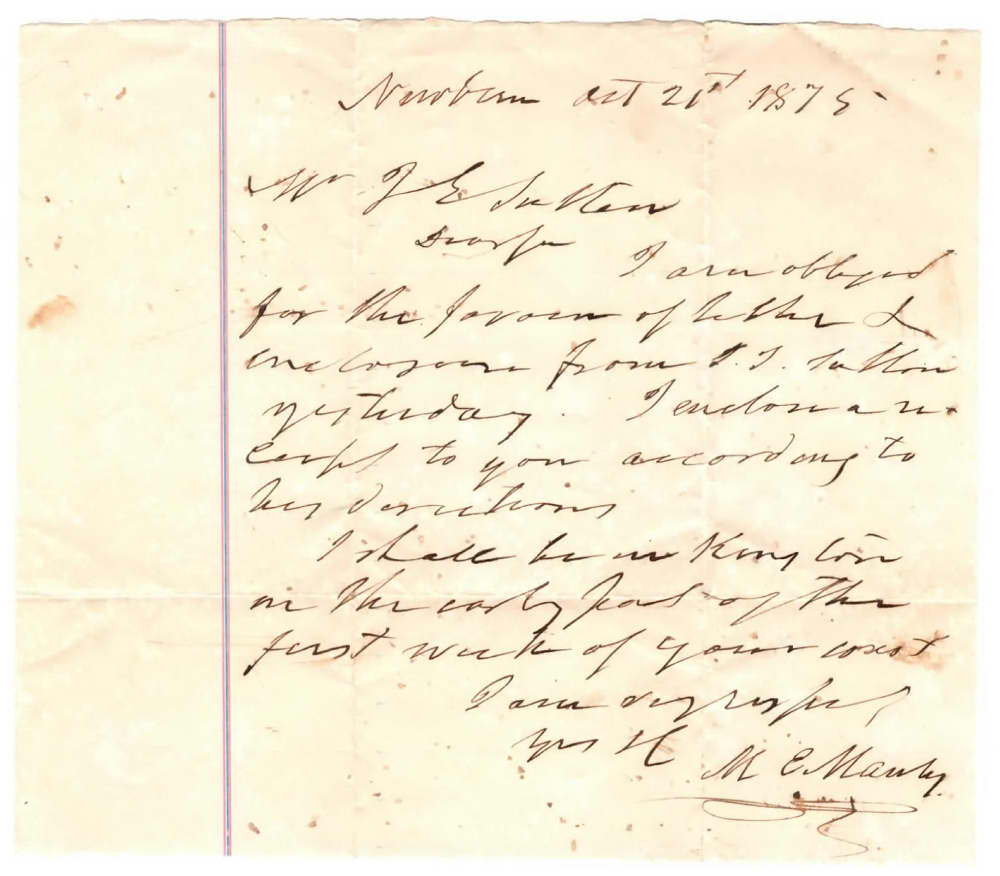 Newbern Oct 21st 1875
Mr J E Sutton
Dear Sir
I am obliged
for the favour of letter &
enclosure from J. I. Sutton
yesterday. I enclose a re-
ceipt to you according to
his directions
I shall be in Kingston
in the early part of the
first week of your court
I am very respect
yrs &c
M E Manly